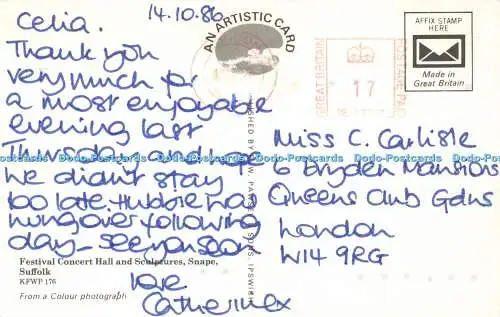 Celia.
14.10.86
Thank you
very much for
a most enjoyable
evening last
Thursday and
we didn't stay
too late.
hungover following
day - see you soon
love
Catherine x
Festival Concert Hall and Sculptures, Snape,
Suffolk
KFWP 176
From a Colour photograph
AN ARTISTIC CARD
GREAT BRITAIN
17
POSTAGE PAID
AFFIX STAMP
HERE
Made in
Great Britain
Miss C. Carlisle
6 Bryden Mansions
Queens Club Gdns
London
W14 9RG
Dodo-Postcards Dodo-Postcards Dodo-Postcards Dodo-Postcards Dodo-Postcards Dodo-Postcards